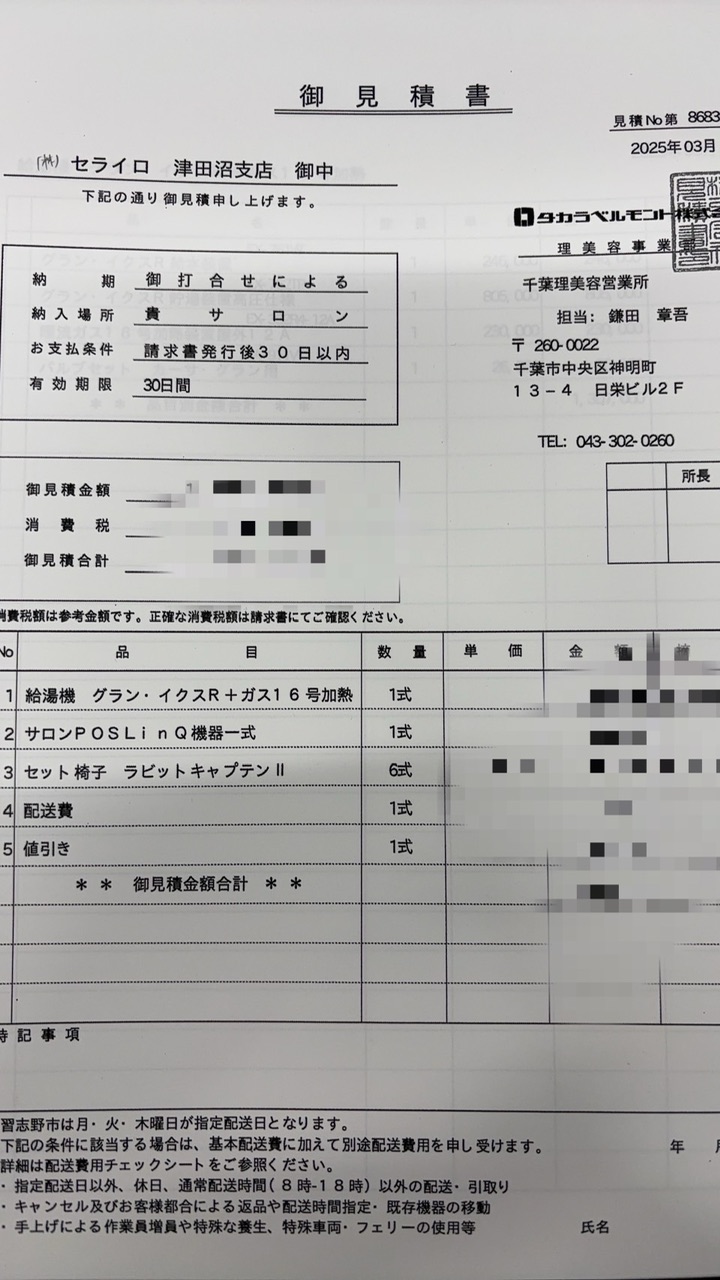 御見積書
見積No第 8683
2025年03月
(株) セライロ 津田沼支店 御中
下記の通り御見積申し上げます。
タカラベルモント株式会
理美容事業部
千葉理美容営業所
担当: 鎌田 章吾
〒 260-0022
千葉市中央区神明町
13-4 日栄ビル2F
TEL: 043-302-0260
納期 御打合せによる
納入場所 貴サロン
お支払条件 請求書発行後30日以内
有効期限 30日間
御見積金額
消費税
御見積合計
所長
消費税額は参考金額です。正確な消費税額は請求書にてご確認ください。
No 品目 数量 単価 金額
1 給湯機 グラン・イクスR+ガス16号加熱 1式
2 サロンPOSLinQ機器一式 1式
3 セット椅子 ラビットキャプテンⅡ 6式
4 配送費 1式
5 値引き 1式
** 御見積金額合計 **
特記事項
習志野市は月・火・木曜日が指定配送日となります。
下記の条件に該当する場合は、基本配送費に加えて別途配送費用を申し受けます。
詳細は配送費用チェックシートをご参照ください。
・指定配送日以外、休日、通常配送時間(8時-18時)以外の配送・引取り
・キャンセル及びお客様都合による返品や配送時間指定・既存機器の移動
・手上げによる作業員増員や特殊な養生、特殊車両・フェリーの使用等
年 月
氏名